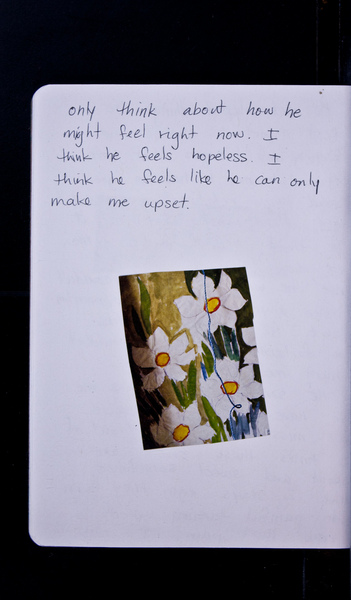 only think about how he
might feel right now. I
think he feels hopeless. I
think he feels like he can only
make me upset.